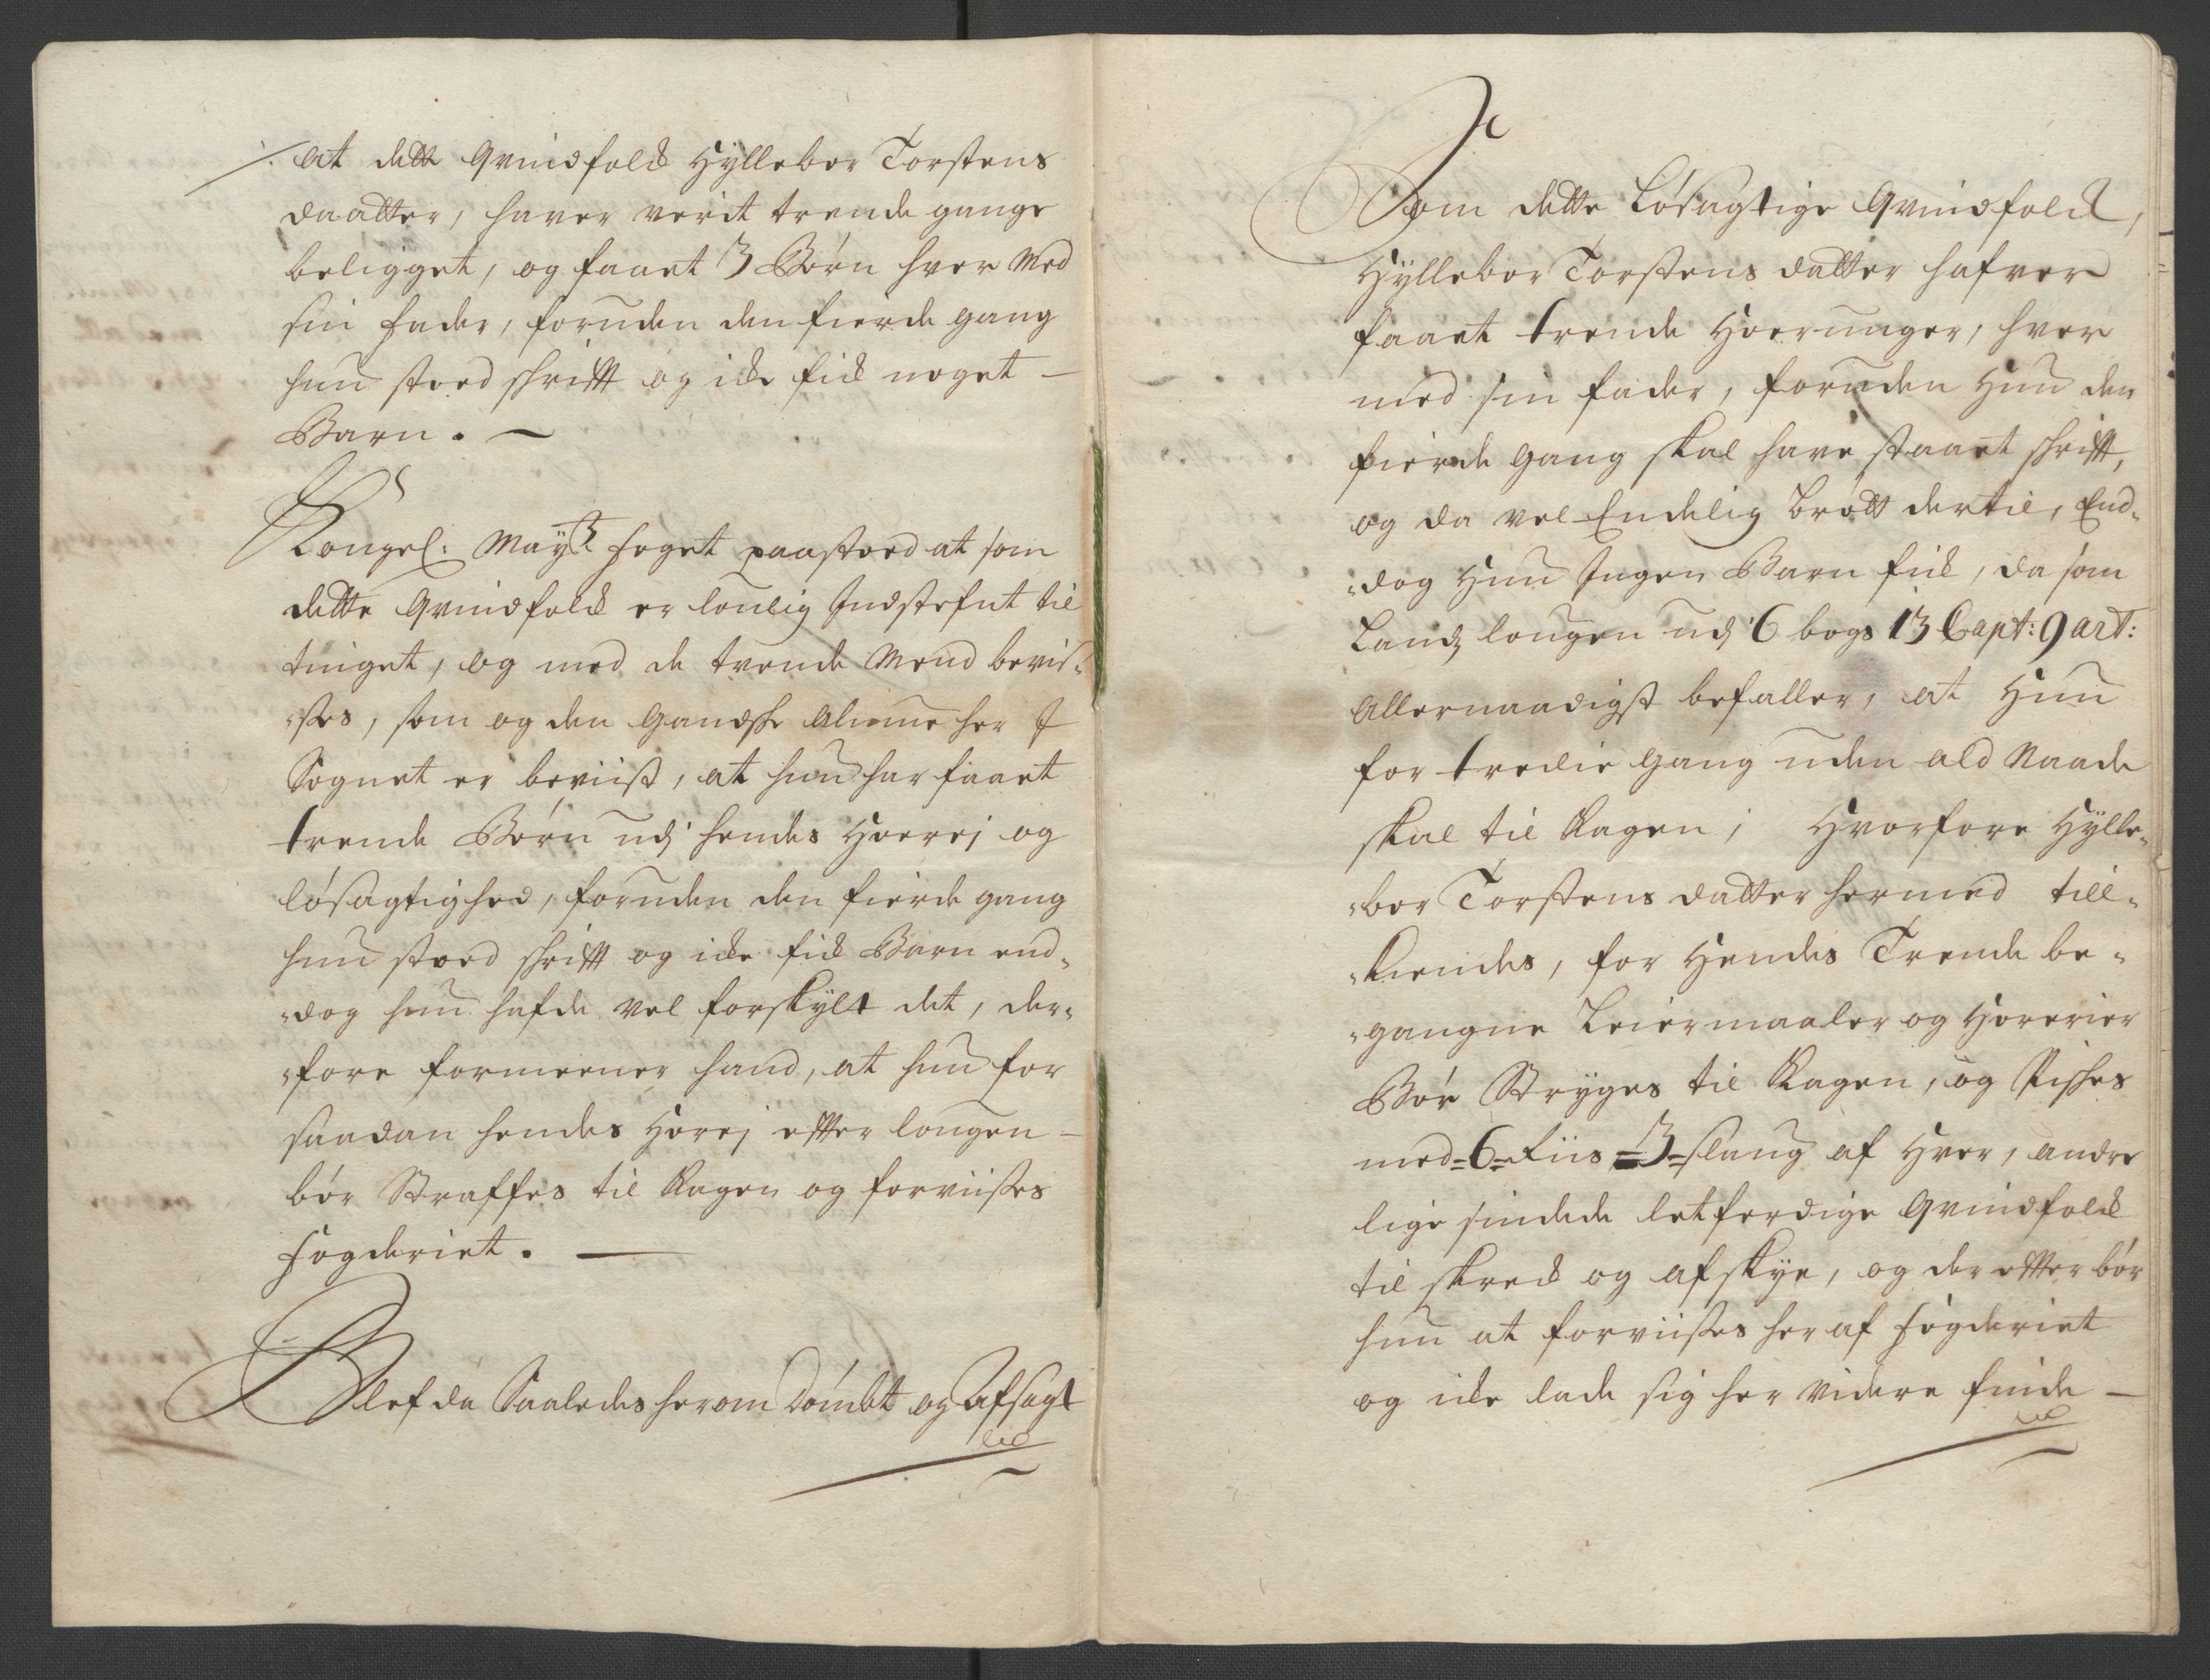 /. at dette Qvindfolck Hyllebor Torstens
daatter, haver verit trende gange
beligget, og faaet 3 Børn hver Med
sin fader, foruden den fierde gang
hun stoed schrifft og icke fick noget —
Barn. —
Kongel: Mayts foget paastoed at som
dette Qvindfolck er louglig Indstefnt til
tinget, og med de trende Mend bevis-
-ses, som og den gandsche Almue her J
Sognet er beviist, at hun har faaet
trende Børn udj hendes Hoerrj og
løsagtighed, foruden den fierde gang
hun stoed schrifft og icke fick Barn end-
-dog hun hafde vel forskylt det, der-
-fore formeener hand, at hun for
saadan hendes Horrj effter lougen —
bør Straffes til Kagen og forviisses
fogderiet. —
Blef da Saaledes herom Dømbt og Afsagt
Som dette Løsagtige Qvindfolck,
Hyllebor Torstens datter hafver
faaet trende Hoerunger, hver
med sin fader, foruden Hun den
fierde gang skal have staaet schrifft,
og da vel Endelig brøtt dertil, End-
-dog Hun Ingen Barn fick, da som
Landz lougen udj 6 bogs 13 Capt: 9 art:
Allernaadigst befaller, at Hun
for tredie gang uden ald Naade
skal til Kagen; Hvorfore Hylle-
-bor Torstens datter hermed till-
-kiendes, for Hendes Trende be-
-gangne Leiermaaler og Horerier
Bør Stryges til Kagen, og Pisches
med 6 Riis 3 slaug af Hver, andre
lige sindede letferdige Qvindfolck
til skreck og afskye, og der effter bør
hun at forviisses her af fogderiet
og icke lade sig her videre finde —